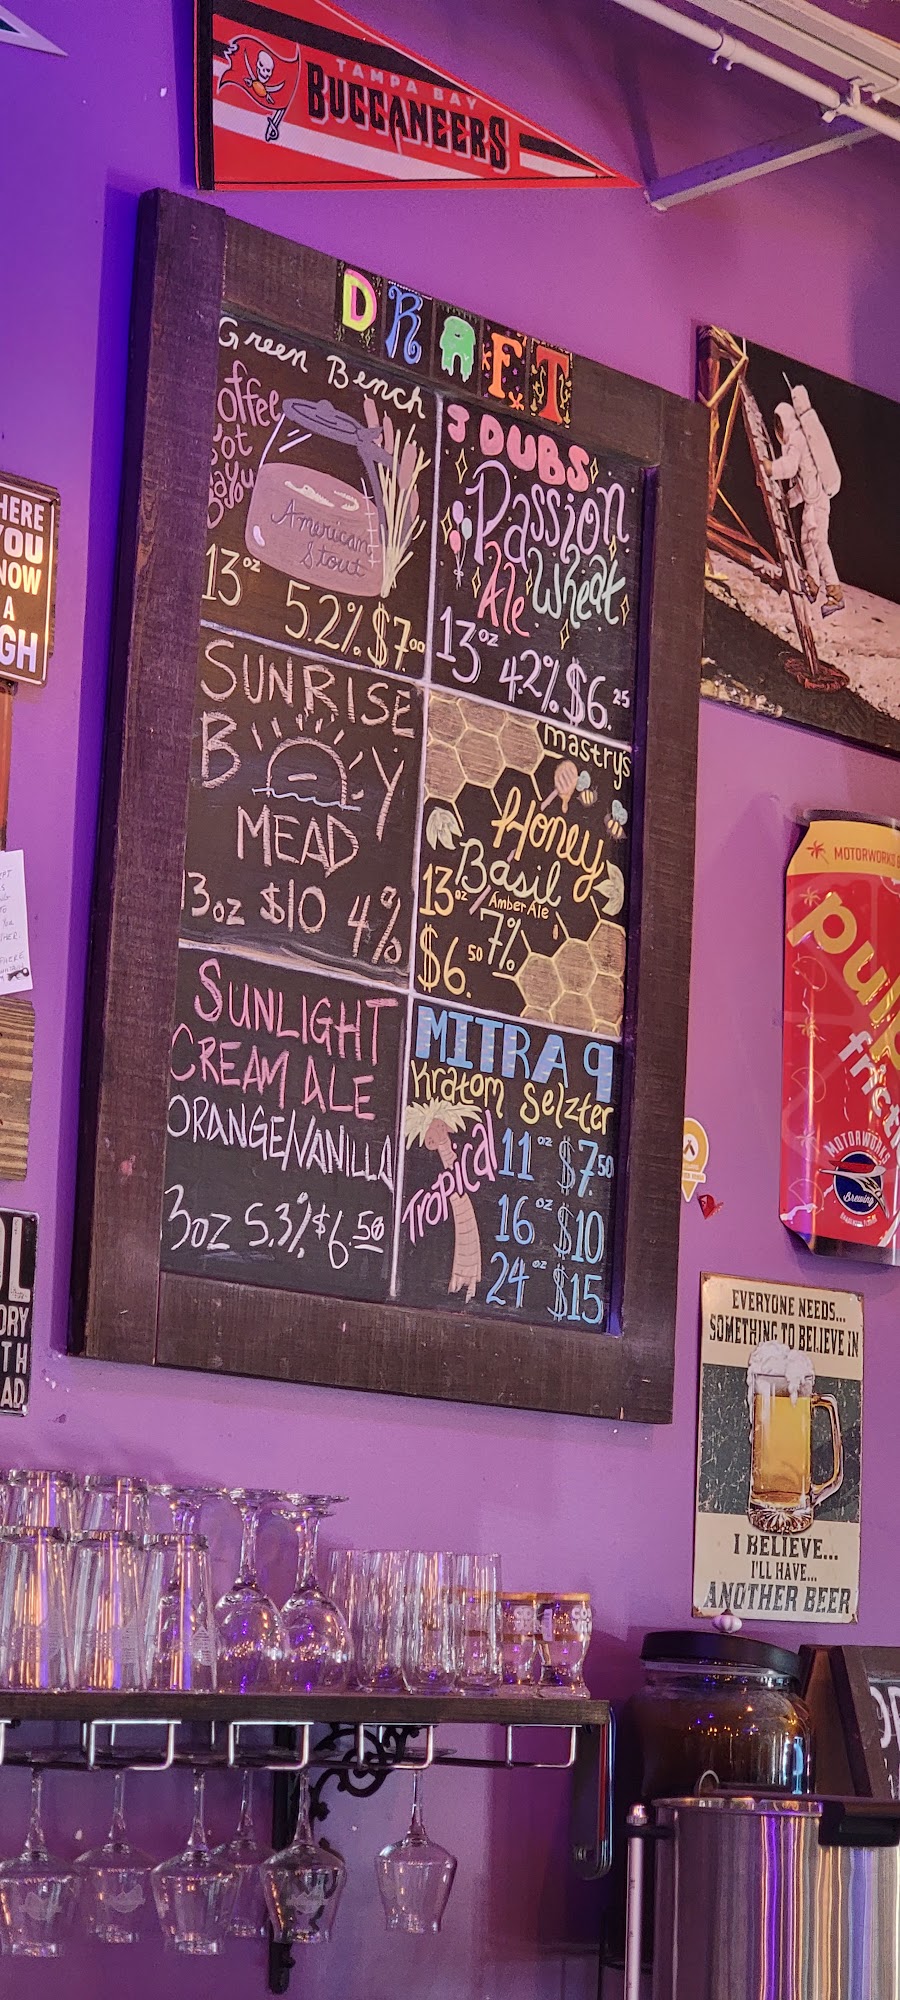 TAMPA BAY
BUCCANEERS
DRAFT
Green Bench
American
Stout
13oz 5.2% $7.00
3 DUBS
Passion
Wheat
Ale
13oz 4.2% $6.25
SUNRISE
B Y
MEAD
3oz $10 4%
mastry's
Honey
Basil
Amber Ale
13oz 7%
$6.50
SUNLIGHT
CREAM ALE
ORANGE/VANILLA
3oz 5.3% $6.50
MITRA 9
Kratom Selzter
Tropical
11oz $7.50
16oz $10
24oz $15
HERE
YOU
NOW
A
GH
L
ORY
TH
AD
MOTORWORKS
pulp
frict
MOTORWORKS
Brewing
EVERYONE NEEDS...
SOMETHING TO BELIEVE IN
I BELIEVE...
I'LL HAVE...
ANOTHER BEER